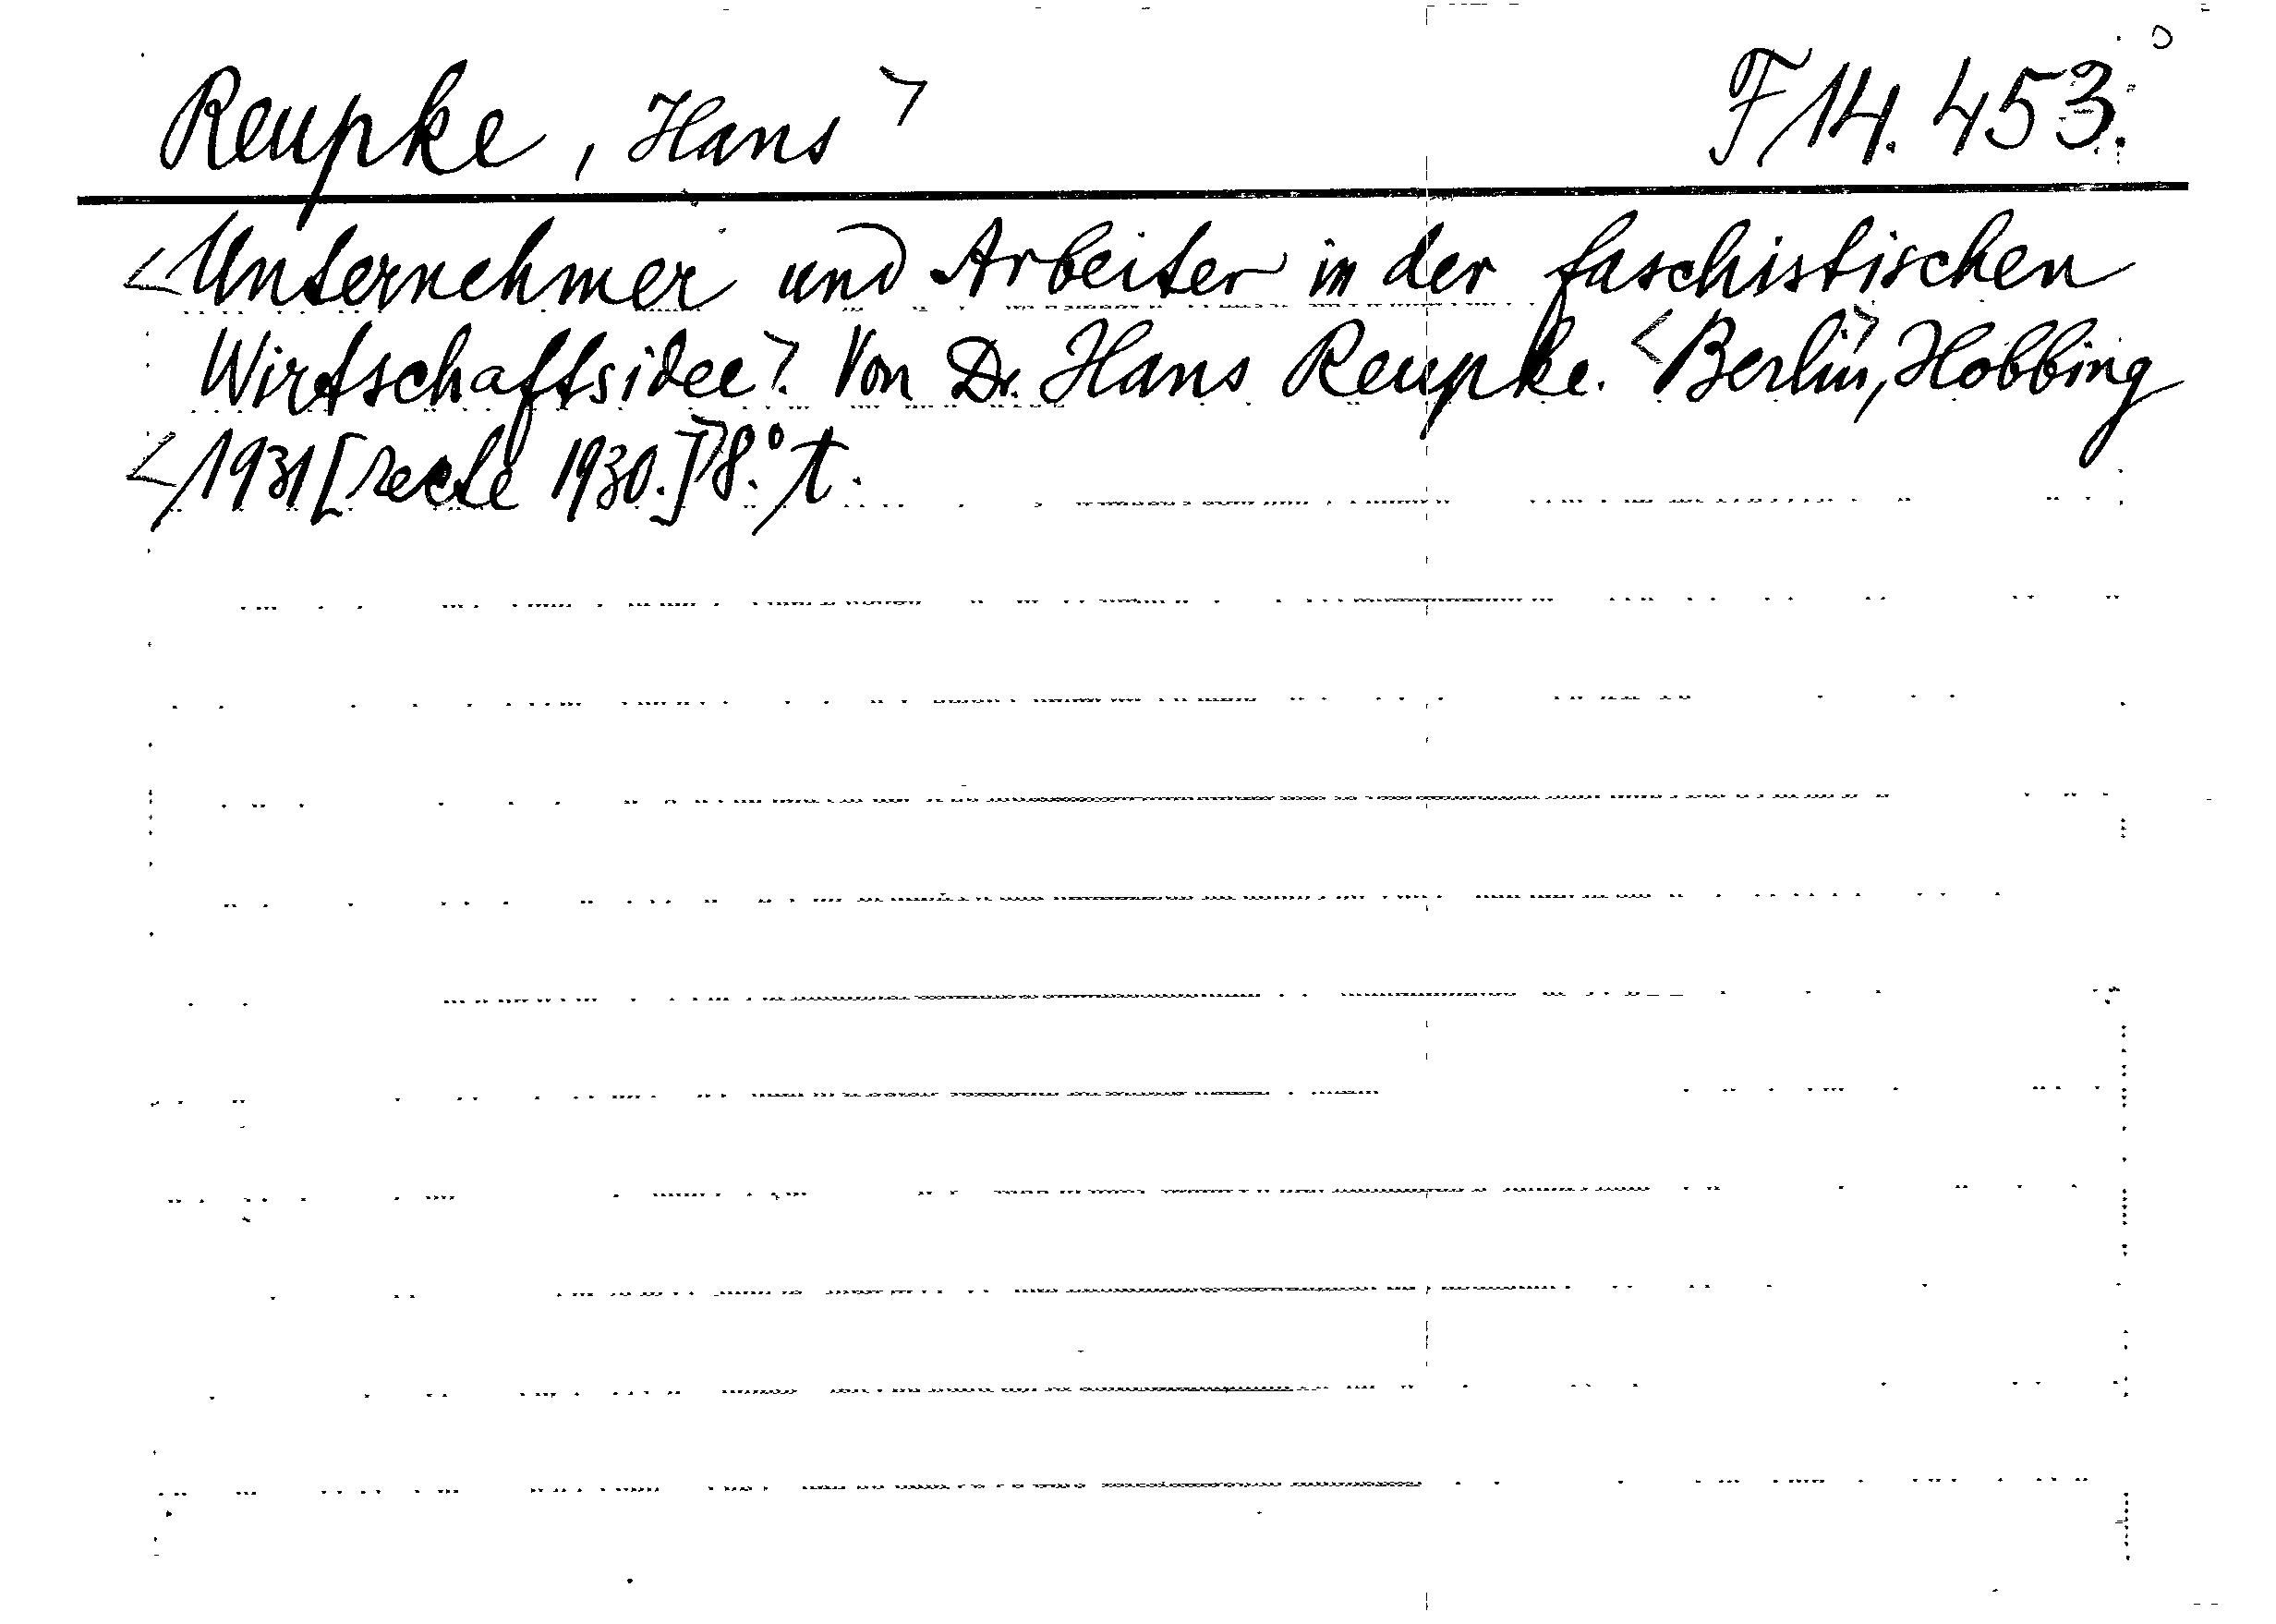 Reupke, Hans> F 14.453.
<Unternehmer und Arbeiter in der faschistischen
Wirtschaftsidee>. Von Dr. Hans Reupke. <Berlin>, Hobbing
<1931 [recte 1930.]> 8.° t.